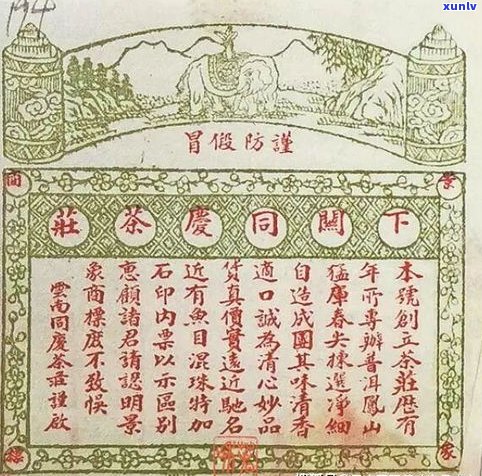 194
xunlv
謹防假冒
景
象
商
標
下關同慶茶莊
本號創立茶莊歷有
年所專辦普洱鳳山
猛庫春尖揀選淨細
自造成團其味清香
適口誠為清心妙品
貨真價實遠近馳名
近有魚目混珠特加
石印內票以示區別
惠顧諸君請認明景
象商標庶不致悞
雲南同慶茶莊謹啟